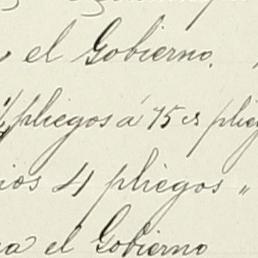 el Gobierno.
pliegos á 75 cs plieg
ios 4 pliegos "
a el Gobierno